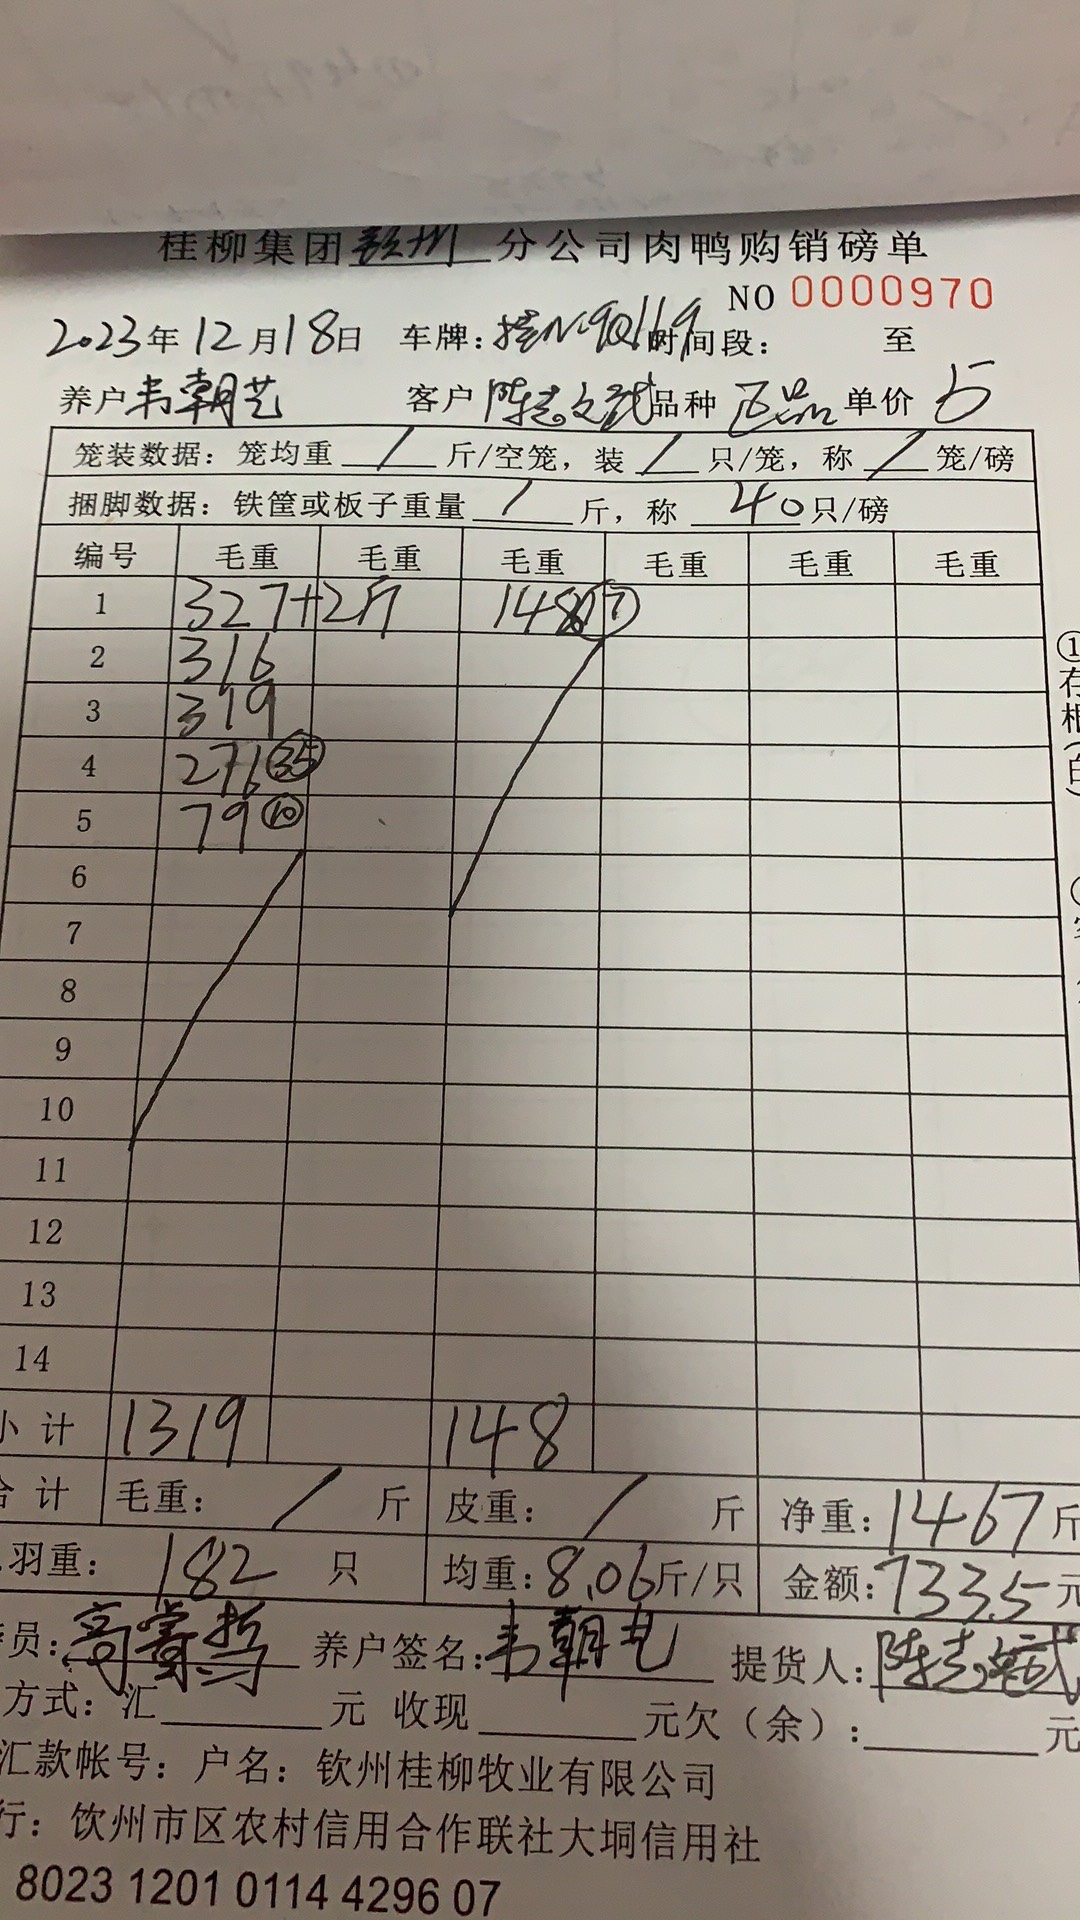 桂柳集团钦州分公司肉鸭购销磅单
NO 0000970
2023年12月18日 车牌：桂N·9Q119 时间段： 至
养户 韦朝艺 客户 陈志文武 品种 正品 单价 5
笼装数据：笼均重 / 斤/空笼，装 / 只/笼，称 / 笼/磅
捆脚数据：铁筐或板子重量 / 斤，称 40 只/磅
编号 毛重 毛重 毛重 毛重 毛重 毛重
1 327+2斤 148 (17)
2 316
3 319
4 276 (35)
5 79 (10)
6
7
8
9
10
11
12
13
14
小计 1319 148
合计 毛重： / 斤 皮重： / 斤 净重：1467斤
羽重： 182 只 均重：8.06斤/只 金额：7335元
员： 养户签名：韦朝艺 提货人：陈志文武
方式：汇 元 收现 元欠（余）： 元
汇款帐号：户名：钦州桂柳牧业有限公司
行：饮州市区农村信用合作联社大垌信用社
8023 1201 0114 4296 07
①存根（白）